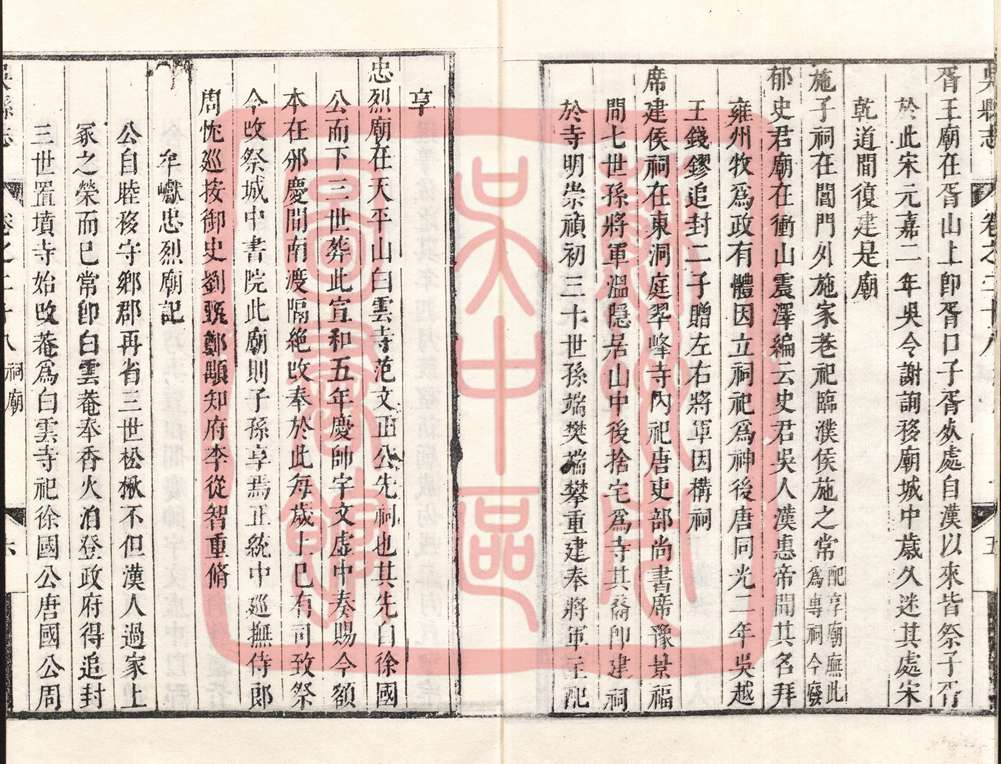 吳縣志 卷之二十八 五
胥王廟在胥山上卽胥口子胥死處自漢以來皆祭子胥
於此宋元嘉二年吳令謝詢移廟城中歲久迷其處宋
乾道間復建是廟
施子祠在閶門外施家巷祀臨濮侯施之常配享廟廡此爲專祠今廢
郁史君廟在衝山震澤編云史君吳人漢惠帝聞其名拜
雍州牧爲政有體因立祠祀爲神後唐同光二年吳越
王錢鏐追封二子贈左右將軍因構祠
席建侯祠在東洞庭翠峰寺內祀唐吏部尚書席豫景福
間七世孫將軍溫隱居山中後捨宅爲寺其裔卽建祠
於寺明崇禎初三十世孫端樊端攀重建奉將軍主配
享
忠烈廟在天平山白雲寺范文正公先祠也其先自徐國
公而下三世葬此宣和五年慶帥宇文虛中奏賜今額
本在邠慶間南渡隔絶改奉於此每歲上巳有司致祭
今改祭城中書院此廟則子孫享焉正統中廵撫侍郎
周忱廵按御史劉甄鄭顒知府李從智重脩
牟巘忠烈廟記
公自睦移守鄉郡再省三世松楸不但漢人過家上
冢之榮而已常卽白雲菴奉香火洎登政府得追封
三世置墳寺始改菴爲白雲寺祀徐國公唐國公周
吳縣志 卷之二十八 祠廟 六
蘇州市
吳中區
圖書館